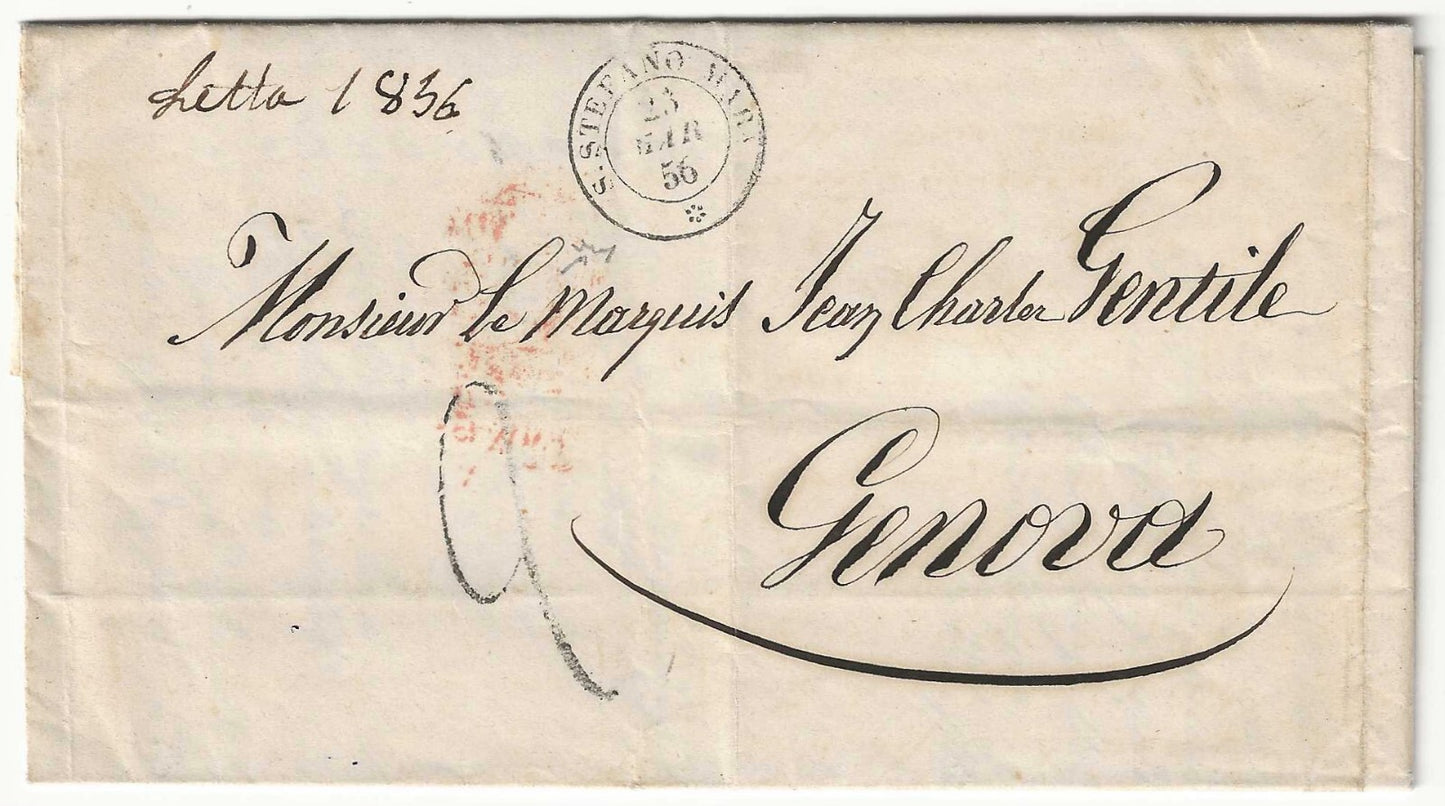 Letta 1856
S. STEFANO MARE
23
MAR
56
Monsieur le Marquis Jean Charles Gentile
Genova